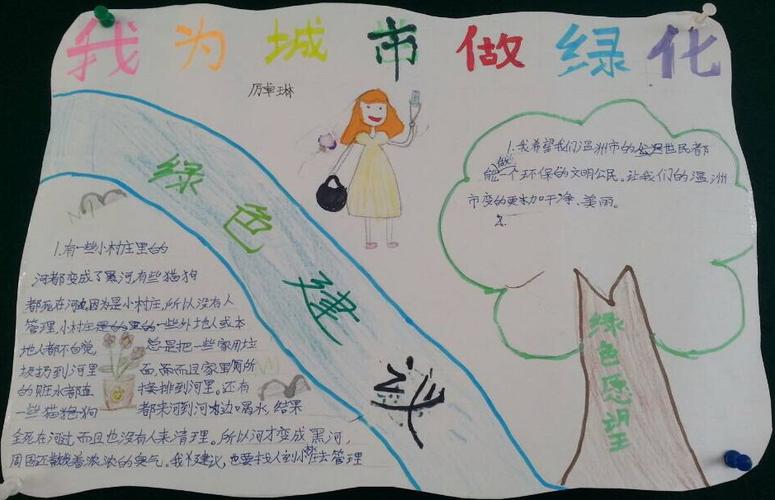 我为城市做绿化
厉卓琳
绿色建议
1.有一些小村庄里的
河都变成了黑河,有些猫狗
都死在河,因为是小村庄,所以没有人
管理,小村庄一些外地人或本
地人都不自觉,总是把一些家用垃
圾扔到河里面,而且家里厕所
的脏水都直接排到河里。还有
一些猫狗都来河边喝水,结果
全死在河边,而且也没有人来清理。所以河才变成黑河,
周围还散发着浓浓的臭气。我建议,也要找人到小村庄去管理
1.我希望我们温州市的世民都
能做一个环保的文明公民。让我们的温州
市变的更加干净、美丽。
绿色愿望